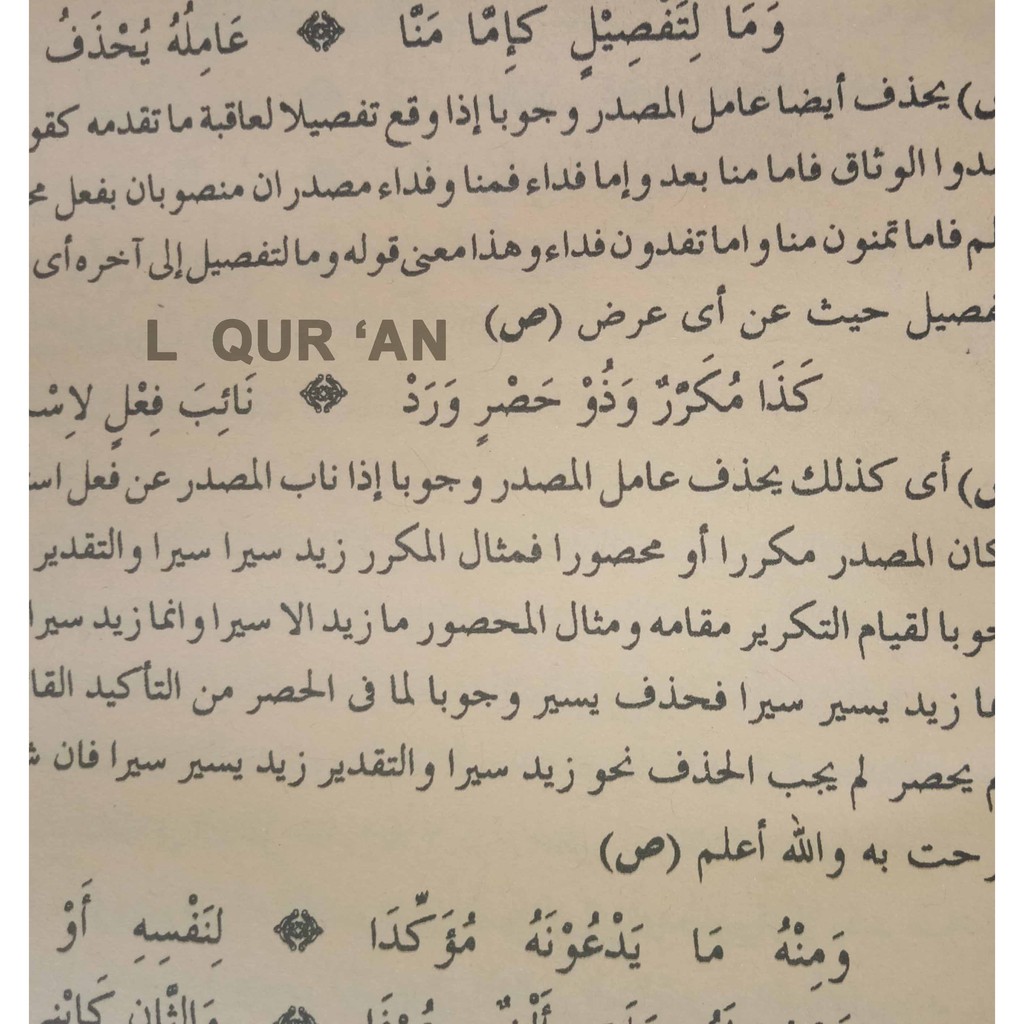 وَمَا لِتَفْصِيْلٍ كَإِمَّا مَنَّا عَامِلُهُ يُحْذَفُ
يحذف أيضا عامل المصدر وجوبا إذا وقع تفصيلا لعاقبة ما تقدمه
الوثاق فاما منا بعد وإما فداء فمنا وفداء مصدران منصوبان بفعل
فاما تمنون منا واما تفدون فداء وهذا معنى قوله وما لتفصيل إلى آخره أى
حيث عن أى عرض (ص)
L QUR ‘AN
كَذَا مُكَرَّرٌ وَذُوْ حَصْرٍ وَرَدْ نَائِبَ فِعْلٍ
أى كذلك يحذف عامل المصدر وجوبا إذا ناب المصدر عن فعل
المصدر مكررا أو محصورا فمثال المكرر زيد سيرا سيرا والتقدير
لقيام التكرير مقامه ومثال المحصور ما زيد الا سيرا وانما زيد سيرا
زيد يسير سيرا فحذف يسير وجوبا لما فى الحصر من التأكيد
يحصر لم يجب الحذف نحو زيد سيرا والتقدير زيد يسير سيرا فان
به والله أعلم (ص)
وَمِنْهُ مَا يَدْعُوْنَهُ مُؤَكِّدَا لِنَفْسِهِ أَوْ